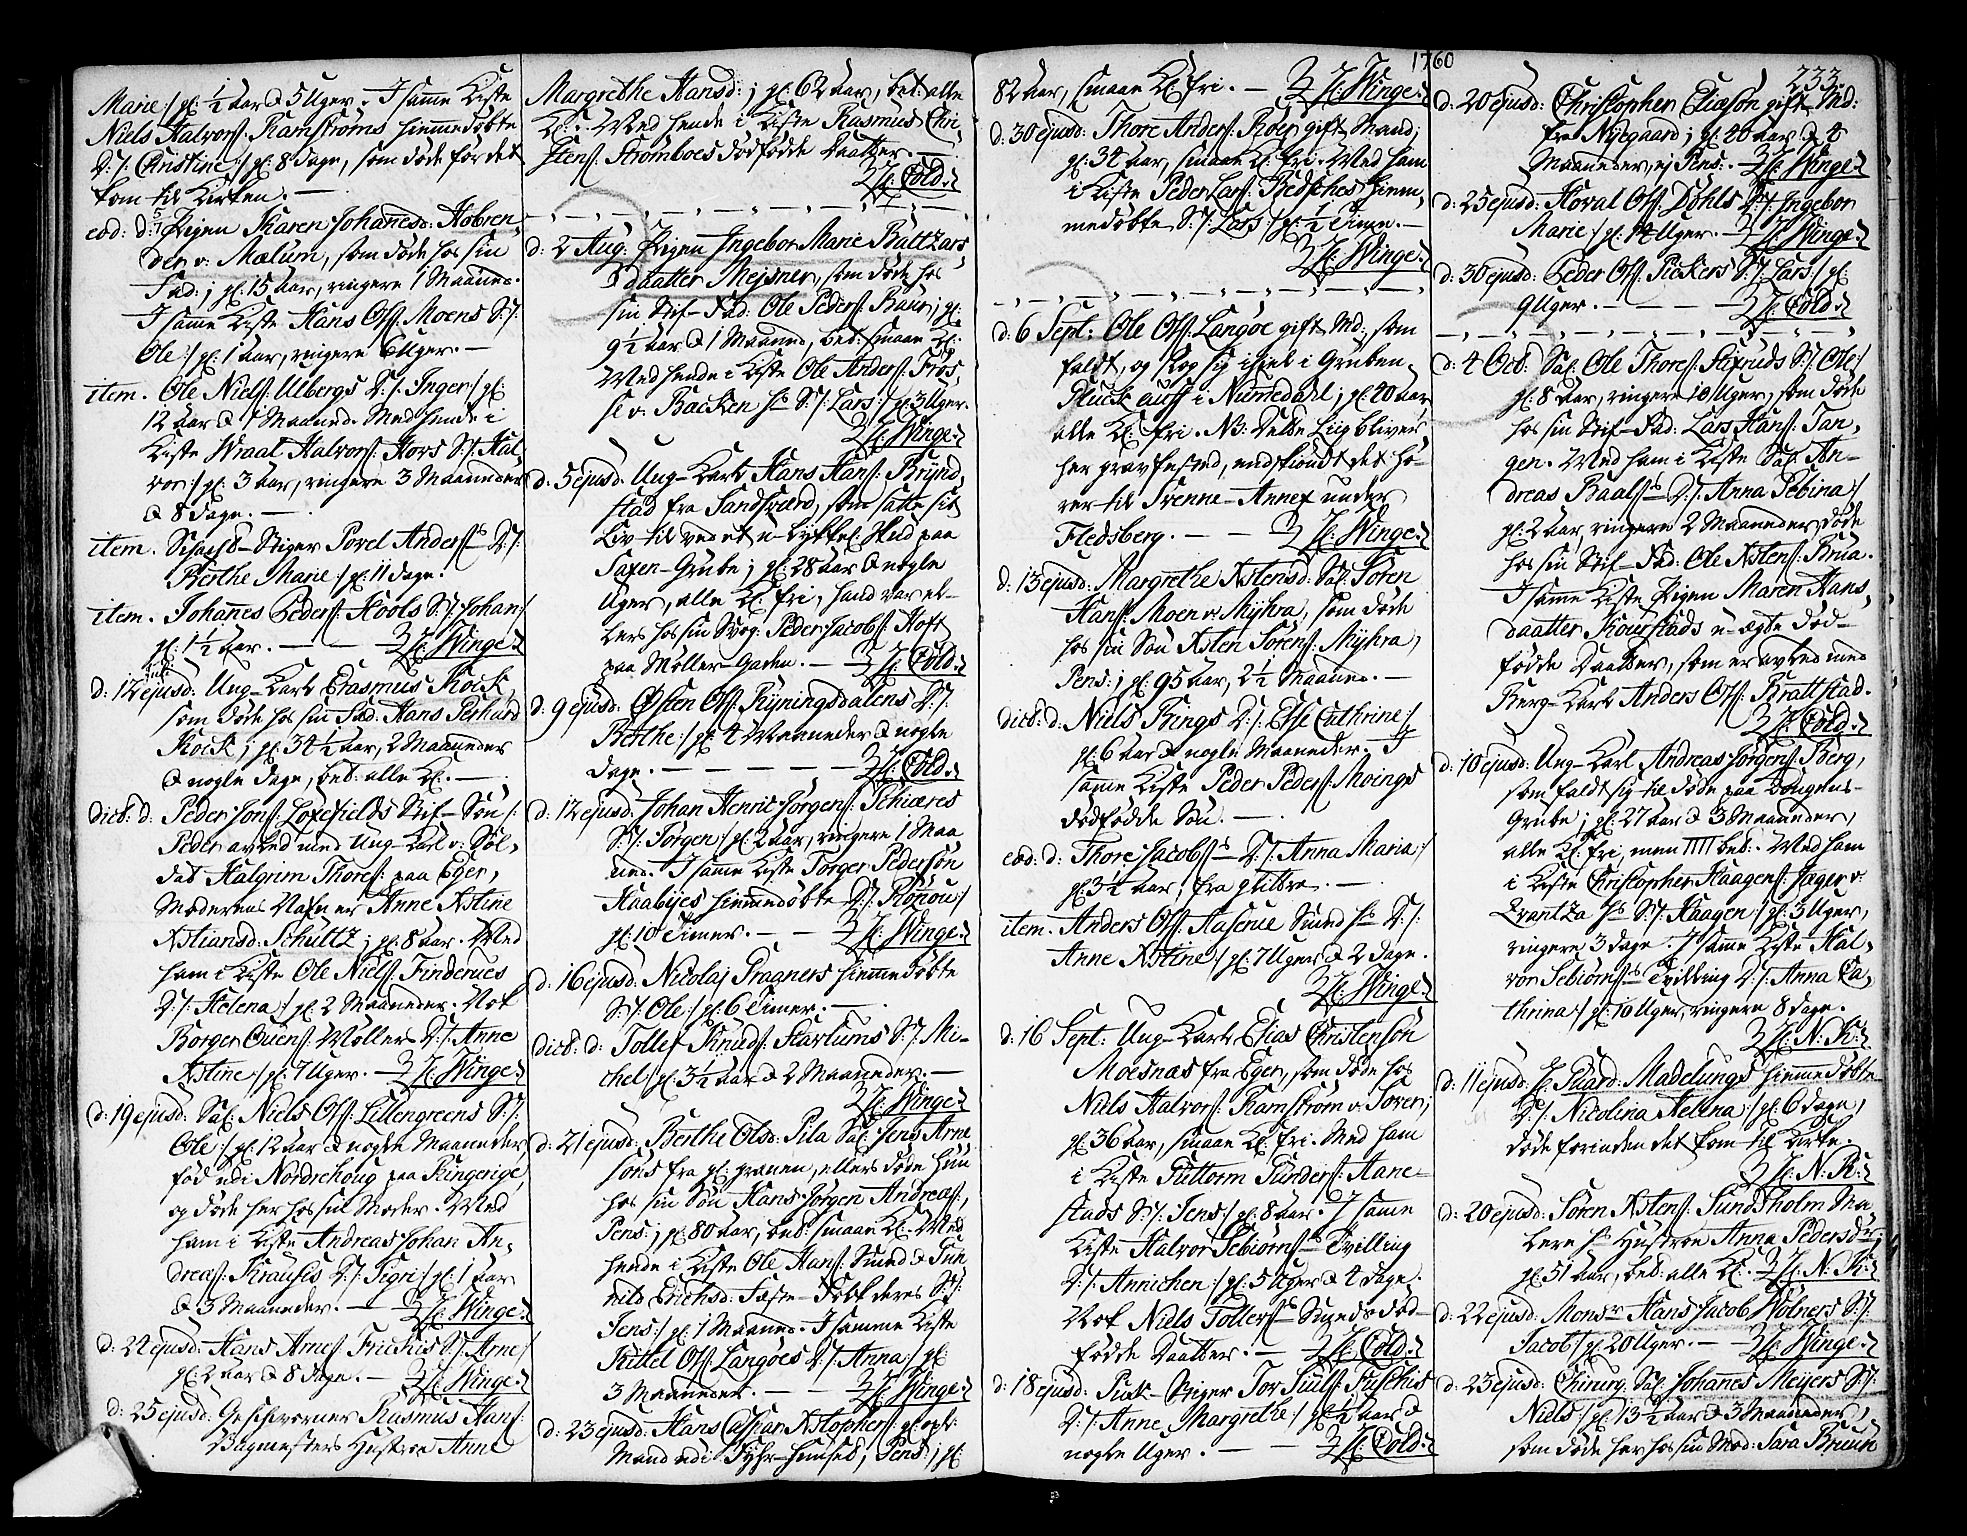 Marie :/ gl: ½ aar & 5 Uger. I samme Kiste
Niels Halvors: Ramstrøms hiemmedøbte
D:/: Christine :/ gl: 8 dage, som døde før det
kom til Kirken. —
eod: d: Pigen Karen Johanesd: Hobren,
der v: Mælum, som døde hos sin
Fad: ; gl: 15 aar, ringere 1 Maaned.
I same Kiste Hans Ols: Moens S:/:
Ole :/ gl: 1 aar, ringere 6 Uger. —
item. Ole Niels: Ulbergs D:/: Inger :/ gl:
12 aar & 1 Maaned. Med hende i
Kiste Wraal Halvors: Hovs S:/: Hal,
vor :/ gl: 3 aar, ringere 3 Maaneder
& 8 dage. —
item. Schacht-Stiger Povel Anders:s D:/:
Berthe Marie :/ gl: 11 dage.
item. Johanes Peders: Hools S:/: Johan :/
gl: 1½ aar. — — H: Winge.
d: 12 ejusd: Ung-Karl Erasmus Kock,
som døde hos sin Fad: Hans Gerhard
Kock ; gl: 34½ aar, 2 Maaneder
& nogle dage, bet: alle Kl: —
dict: d: Peder Jons: Loxefields Stif-Søn :/:
Peder avlet med Ung-Karl v: Sol,
dat Halgrim Thores: paa Eger,
Moderens Nafn er Anne Kstine
Kstiansd: Schultz ; gl: 8 aar. Med
ham i Kiste Ole Niels: Finderues
D:/: Helena :/ gl: 2 Maaneder. Nok
Borger Ouens: Møllers D:/: Anne
Kstine :/ gl: 7 Uger. — H: Winge.
d: 19 ejusd: Sal: Niels Ols: Lillengreens S:/:
Ole :/ gl: 12 aar & nogle Maaneder,
fød udi Nordrehoug paa Ringerige,
og døde her hos sin Moder. Med
ham i Kiste Andreas Johan An,
dreas: Krauses D:/: Sigri :/ gl: 1 aar
& 3 Maaneder. — H: Winge.
d: 24 ejusd: Hans Arnes: Frichis S:/: Arne :/
gl: 2 aar & 8 dage. — H: Winge.
d: 25 ejusd: Geschworner Rasmus Hans:
Bugmesters Hustroe Anne
Margrethe Hansd: ; gl: 62 aar, bet: alle
Kl: . Med hende i Kiste Rasmus Chri-
stens: Strømboes dødfødde Daatter. —
H: Cold.
d: 2 Aug: Pigen Ingebor Marie Baltzars,
daatter Mejsner, som døde hos
sin Stif-Fad: Ole Peders: Baur, gl:
9½ aar & 1 Maaned, bet: smaae Kl:
Med hende i Kiste Ole Anders: Fros,
se v: Backen hs S:/: Lars :/ gl: 3 Uger.
H: Winge.
d: 5 ejusd: Ung-Karl Hans Hans: Brynd,
stad fra Sandsværd, som satte sit
Liv til ved et u-lykkel: Skud paa
Saxen-Grube ; gl: 28 aar & nogle
Uger, alle Kl: fri, hand var el-
lers hos sin Svog: Peder Jacobs: Hoft
paa Møller-Gaden. — H: Cold.
d: 9 ejusd: Østen Ols: Ryningsdalens D:/:
Berthe :/ gl: 4 Maaneder & nogle
dage. — — — H: Cold.
d: 12 ejusd: Johan Henric Jørgens: Schiæres
S:/: Jørgen :/ gl: 2 aar, ringere 1 Maa
ned. I samme Kiste Torger Pedersøn
Haabyes hiemmedøbte D:/: Ronou :/
gl: 10 Timer. — — H: Winge.
d: 16 ejusd: Nicolaj Pragners hiemmedøbte
S:/: Ole :/ gl: 6 Timer. —
dict: d: Tollef Knuds: Skarlums S:/: Mi-
chel :/ gl: 3½ aar & 2 Maaneder. —
H: Winge.
d: 21 ejusd: Berthe Olsd: Pila Sal: Jens Arne
søns fra gl: granen, ellers døde hun
hos sin Søn Hans Jørgen Andreas:,
Pens: ; gl: 80 aar, bet: smaae Kl: Med
hende i Kiste Ole Hans: Smed & Gun
nild Erichsd: Fæste-Folk deres S:/:
Jens :/ gl: 1 Maaned. I samme Kiste
Kittel Ols: Langøes D:/: Anna :/ gl:
3 Maaneder. — — H: Winge.
d: 23 ejusd: Hans Caspar Kstophers: gl: gift
Mand udi Fyhr-huuset, Pens: ; gl:
1760
82 aar, smaae Kl: fri. — H: Winge.
d: 30 ejusd: Thore Anders: Roer gift Mand ;
gl: 34 aar, smaae Kl: fri. Med ham
i Kiste Peder Lars: Bedsches hiem,
medøbte S:/: Lars :/ gl: ½ Time. —
H: Winge.
d: 6 Sept: Ole Ols: Langøe gift Md: som
faldt, og slog sig ihjel i Gruben
Gluck auff i Numedahl ; gl: 40 aar
alle Kl: fri. NB: Dette Liig bliver
her gravfæsted, endskiondt det hø-
rer til Svenne-Annex under
Flesberg. — — H: Winge.
d: 13 ejusd: Margrethe Kstensd: Sal: Søren
Hans: Moen v: Myhra, som døde
hos sin Søn Ksten Sørens: Myhra,
Pens: ; gl: 95 aar, 2½ Maaned. —
dict: d: Niels Krings D:/: Else Cathrine :/
gl: 6 aar & nogle Maaneder. I
samme Kiste Peder Peders: Moings
dødfødde Søn. —
eod: d: Thore Jacobs:s D:/: Anna Maria :/
gl: 3½ aar ; fra Hytten. —
item. Anders Ols: Haserue Smed hs D:/:
Anne Kstine :/ gl: 7 Uger & 2 dage.
H: Winge.
d: 16 Sept: Ung-Karl Elias Christensøn
Moesnas fra Eger, som døde hos
Niels Halvors: Ramstrøm v: Soren ;
gl: 36 aar, smaae Kl: fri. Med ham
i Kiste Guttorm Gunders: Aane-
stads S:/: Jens :/ gl: 8 aar. I samme
Kiste Halvor Sebiørns:s Tvilling
D:/: Annichen :/ gl: 5 Uger & 4 dage.
Nok Niels Tollers:s Smeds død-
fødde Daatter. — H: Cold.
d: 18 ejusd: Puk-Stiger Tor Juuls: Fischis
D:/: Anne Margrethe :/ gl: ½ aar &
nogle Uger. — — H: Cold.
233
d: 20 ejusd: Christopher Eliæsøn gift Md:
fra Nyegaard ; gl: 40 aar & 4
Maaneder, ej Pens: . H: Winge.
d: 25 ejusd: Hovel Ols: Dohls D:/: Ingebor
Marie :/ gl: 14 Uger. — H: Winge.
d: 30 ejusd: Peder Ols: Pickers S:/: Lars :/ gl:
9 Uger. — — — H: Cold.
d: 4 Oct: Sal: Ole Thores: Schruds S:/: Ole :/
gl: 8 aar, ringere 10 Uger, som døde
hos sin Stif-Fad: Lars Hans: Tan,
gen. Med ham i Kiste Sal: An-
dreas Baals:s D:/: Anna Sebina :/
gl: 2 aar, ringere 2 Maaneder, døde
hos sin Stif-Fad: Ole Kstens: Brua.
I samme Kiste Pigen Maren Hans,
daatter Kourstads u-ægte død-
fødde Daatter, som er avlet med
Berg-Karl Anders Ols: Brattstad.
H: Cold.
d: 10 ejusd: Ung-Karl Andreas Jørgens: Berg,
som faldt sig til døde paa Kongens-
Grube ; gl: 27 aar & 3 Maaneder,
alle Kl: fri, men IIII bet: . Med ham
i Kiste Christopher Haagens: Jager v:
Qrantza hs S:/: Haagen :/ gl: 3 Uger,
ringere 3 dage. I samme Kiste Hal,
vor Sebiørns:s Tvilling D:/: Anna Ca,
thrina :/ gl: 10 Uger, ringere 8 dage.
H: N: K:
d: 11 ejusd: H: Guard: Madelungs hiemmedøbte
D:/: Nicolina Helena :/ gl: 6 dage,
døde forinden det kom til Kirke.
H: N: K:
d: 20 ejusd: Søren Kstens: Sundsholm Ma,
lere hs Hustroe Anna Pedersdr ;
gl: 51 aar, bet: alle Kl: . H: N: K:
d: 22 ejusd: Monsr Hans Jacob Nølners S:/:
Jacob :/ gl: 20 Uger. — H: Winge.
d: 23 ejusd: Chirurg: Sal: Johanes Meijers S:/:
Niels :/ gl: 13½ aar & 3 Maaneder,
som døde her hos sin Mod: Sara Bruun